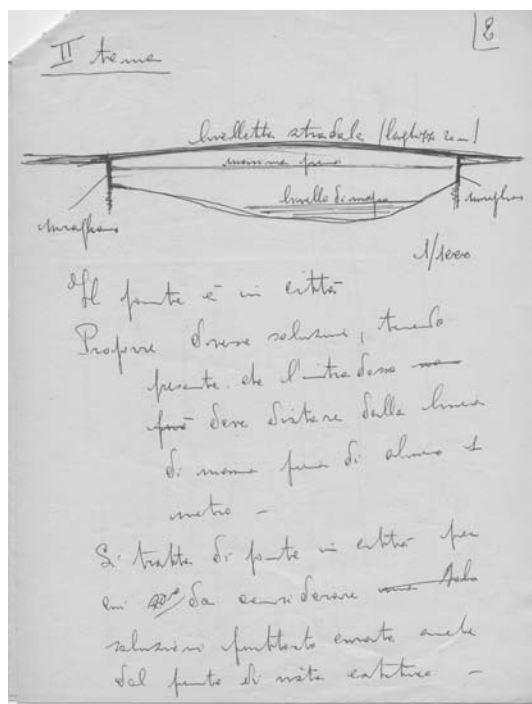 2
II tema
livelletta stradale (larghezza 20 m)
massima piena
livello di magra
muraglione
muraglione
1/1000
Il ponte è in città
Proporre diverse soluzioni, tenendo
presente che l'intradosso
può deve distare dalla linea
di massima piena di almeno 1
metro -
Si tratta di ponte in città per
cui da considerare
soluzioni piuttosto curate anche
dal punto di vista estetico -